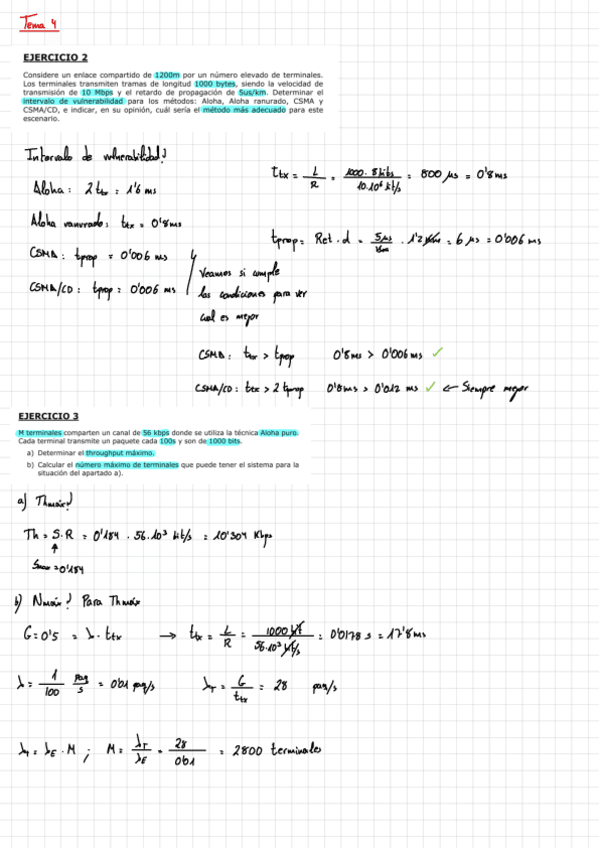 Tema 4
EJERCICIO 2
Considere un enlace compartido de 1200m por un número elevado de terminales.
Los terminales transmiten tramas de longitud 1000 bytes, siendo la velocidad de
transmisión de 10 Mbps y el retardo de propagación de 5us/km. Determinar el
intervalo de vulnerabilidad para los métodos: Aloha, Aloha ranurado, CSMA y
CSMA/CD, e indicar, en su opinión, cuál sería el método más adecuado para este
escenario.
Intervalo de vulnerabilidad?
ttx = L/R = 1000·8 bits / 10·10⁶ bit/s = 800 μs = 0'8 ms
Aloha: 2ttx = 1'6 ms
Aloha ranurado: ttx = 0'8 ms
tprop = Ret · d = 5μs/km · 1'2 km = 6 μs = 0'006 ms
CSMA: tprop = 0'006 ms
CSMA/CD: tprop = 0'006 ms
Veamos si cumple
las condiciones para ver
cual es mejor
CSMA: ttx > tprop 0'8 ms > 0'006 ms ✓
CSMA/CD: ttx > 2 tprop 0'8 ms > 0'012 ms ✓ ← Siempre mejor
EJERCICIO 3
M terminales comparten un canal de 56 kbps donde se utiliza la técnica Aloha puro.
Cada terminal transmite un paquete cada 100s y son de 1000 bits.
a) Determinar el throughput máximo.
b) Calcular el número máximo de terminales que puede tener el sistema para la
situación del apartado a).
a) Thmáx?
Th = S·R = 0'184 · 56·10³ bit/s = 10'304 Kbps
Smax = 0'184
b) Nmáx? Para Thmáx
G = 0'5 = λ · ttx → ttx = L/R = 1000 bit / 56·10³ bit/s = 0'0178 s = 17'8 ms
λ = 1/100 paq/s = 0'01 paq/s λT = G/ttx = 28 paq/s
λT = λE · M ; M = λT/λE = 28/0'01 = 2800 terminales